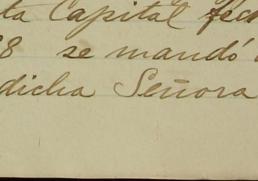 ta Capital fech
8 se mandó
dicha Señora